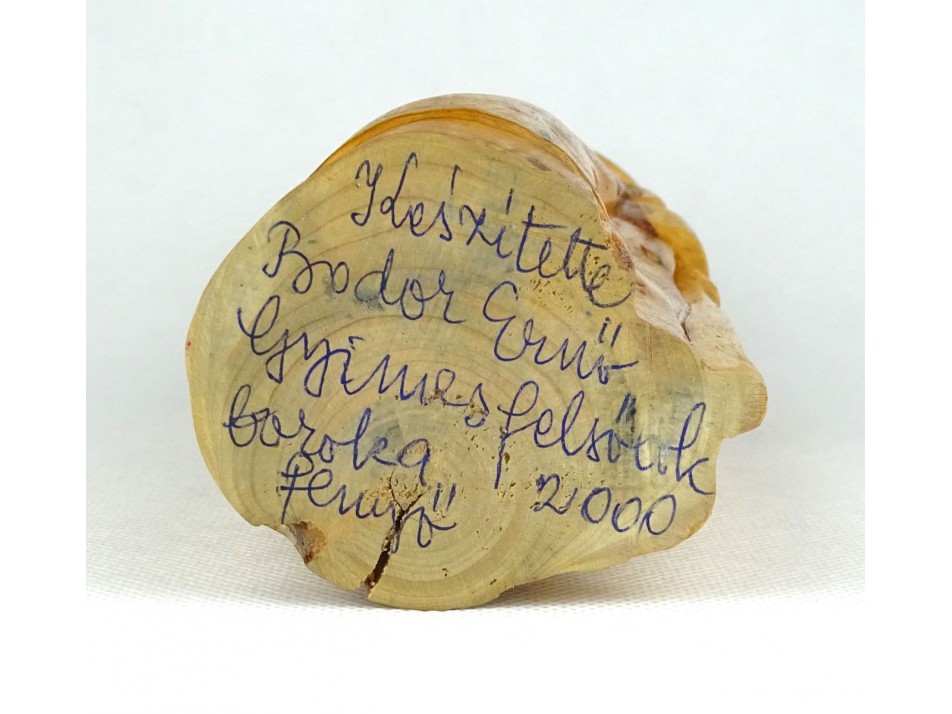 Készítette
Bodor Ernő
Gyimesfelsőlok
boroka
fenyő 2000